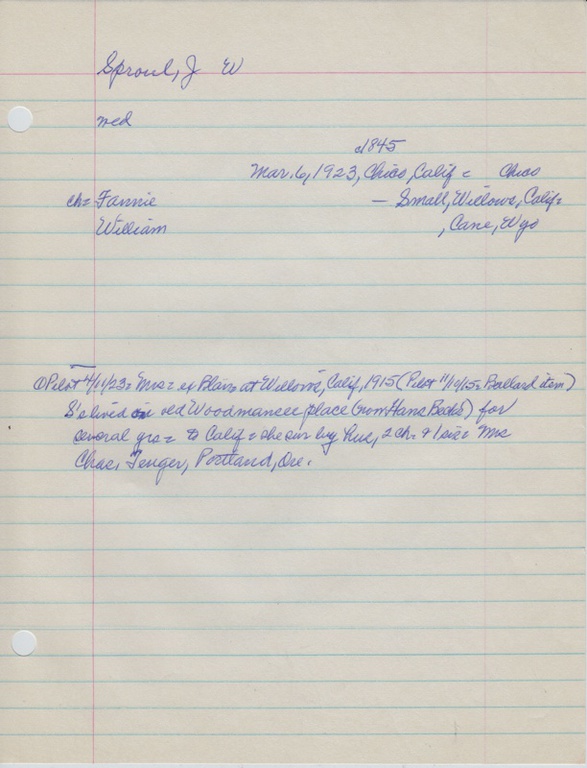 Sproul, J W
wed
d1845
Mar. 6, 1923, Chico, Calif = Chico
ch = Fannie — Small, Willows, Calif =
William , Cane, Wyo
① Pilot 4/11/23 = Mrs = ex Blair at Willows, Calif, 1915 (Pilot 11/10/15 = Ballard item)
S's lived in old Woodmansee place (now Hans Becks) for
several yrs = to Calif = she sur by hus, 2 ch = & 1 sis = Mrs
Chas, Tenger, Portland, Ore.